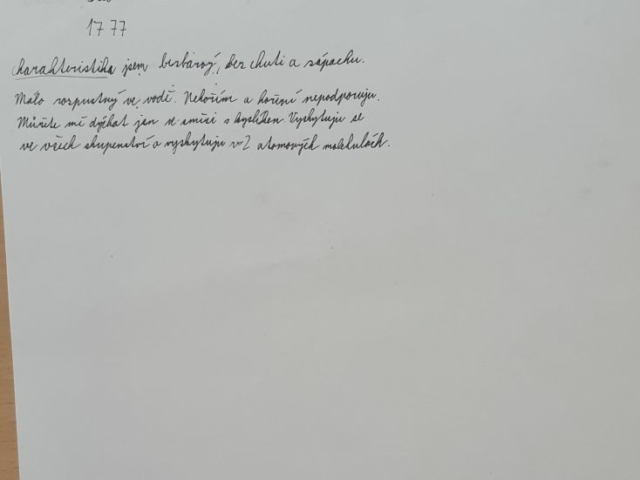 1777
charakteristika jsem bezbarvý, bez chuti a zápachu.
Málo rozpustný ve vodě. Nehořím a hoření nepodporuju.
Můžete mě dýchat jen ve směsi s kyslíkem Vyskytuju se
ve všech skupenství a vyskytuju v 2 atomových molekulách.